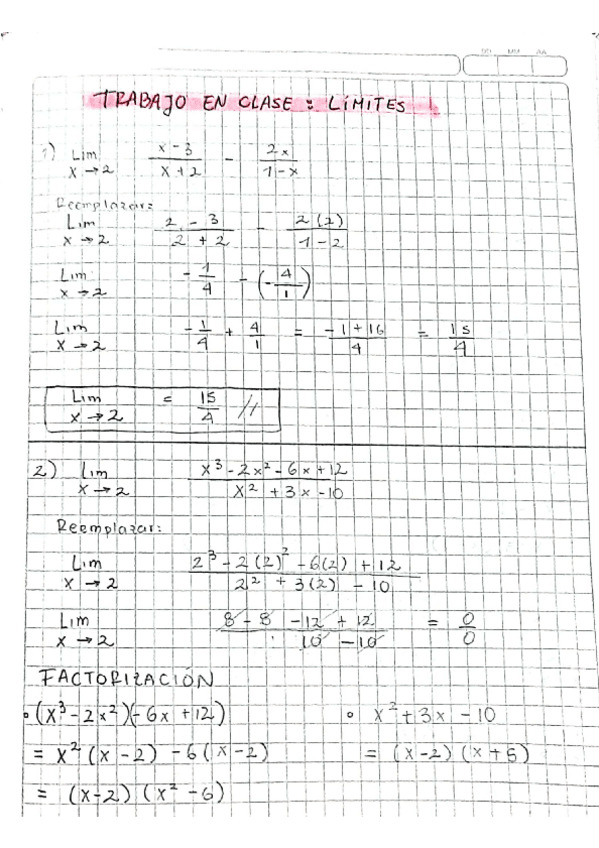 DD MM AA
TRABAJO EN CLASE : LÍMITES
1) Lim x→2 (x-3)/(x+2) - 2x/(1-x)
Reemplazar:
Lim x→2 (2-3)/(2+2) - 2(2)/(1-2)
Lim x→2 -1/4 - (-4/1)
Lim x→2 -1/4 + 4/1 = (-1+16)/4 = 15/4
Lim x→2 = 15/4 //
2) Lim x→2 (x³-2x²-6x+12)/(x²+3x-10)
Reemplazar:
Lim x→2 (2³-2(2)²-6(2)+12)/(2²+3(2)-10)
Lim x→2 (8-8-12+12)/(10-10) = 0/0
FACTORIZACIÓN
• (x³-2x²)(-6x+12) • x²+3x-10
= x²(x-2)-6(x-2) = (x-2)(x+5)
= (x-2)(x²-6)